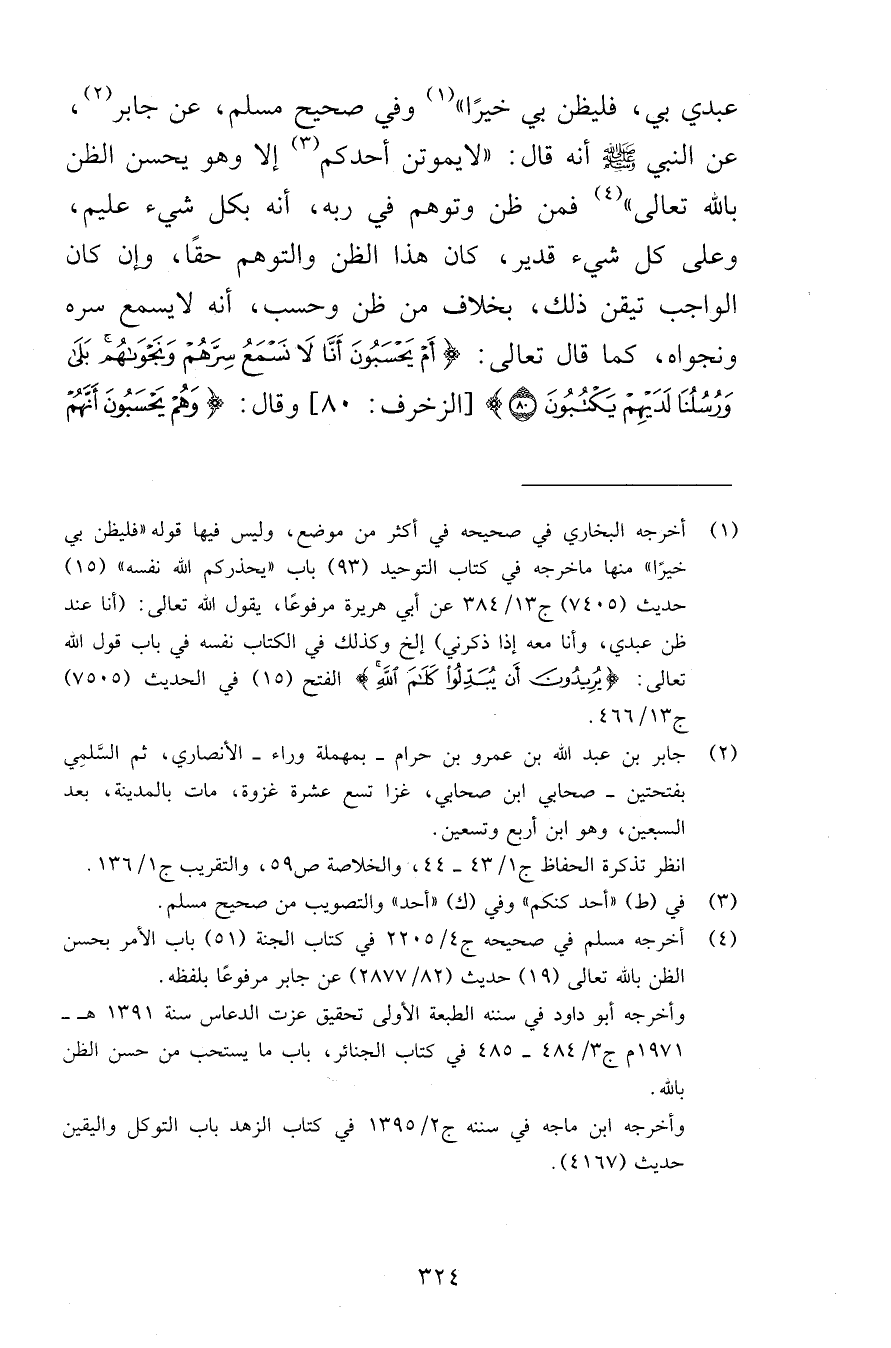 عبدي بي، فليظن بي خيرًا»(١) وفي صحيح مسلم، عن جابر(٢)،
عن النبي ﷺ أنه قال: «لايموتن أحدكم(٣) إلا وهو يحسن الظن
بالله تعالى»(٤) فمن ظن وتوهم في ربه، أنه بكل شيء عليم،
وعلى كل شيء قدير، كان هذا الظن والتوهم حقًا، وإن كان
الواجب تيقن ذلك، بخلاف من ظن وحسب، أنه لايسمع سره
ونجواه، كما قال تعالى: ﴿أَمْ يَحْسَبُونَ أَنَّا لَا نَسْمَعُ سِرَّهُمْ وَنَجْوَىٰهُمۚ بَلَىٰ
وَرُسُلُنَا لَدَيْهِمْ يَكْتُبُونَ ٨٠﴾ [الزخرف: ٨٠] وقال: ﴿وَهُمْ يَحْسَبُونَ أَنَّهُمْ
(١) أخرجه البخاري في صحيحه في أكثر من موضع، وليس فيها قوله «فليظن بي
خيرًا» منها ماخرجه في كتاب التوحيد (٩٣) باب «يحذركم الله نفسه» (١٥)
حديث (٧٤٠٥) ج١٣/ ٣٨٤ عن أبي هريرة مرفوعًا، يقول الله تعالى: (أنا عند
ظن عبدي، وأنا معه إذا ذكرني) إلخ وكذلك في الكتاب نفسه في باب قول الله
تعالى: ﴿يُرِيدُونَ أَن يُبَدِّلُوا۟ كَلَٰمَ ٱللَّهِۚ﴾ الفتح (١٥) في الحديث (٧٥٠٥)
ج١٣/ ٤٦٦.
(٢) جابر بن عبد الله بن عمرو بن حرام ـ بمهملة وراء ـ الأنصاري، ثم السَّلمِي
بفتحتين ـ صحابي ابن صحابي، غزا تسع عشرة غزوة، مات بالمدينة، بعد
السبعين، وهو ابن أربع وتسعين.
انظر تذكرة الحفاظ ج١/ ٤٣ ـ ٤٤، والخلاصة ص٥٩، والتقريب ج١/ ١٣٦.
(٣) في (ط) «أحد كنكم» وفي (ك) «أحد» والتصويب من صحيح مسلم.
(٤) أخرجه مسلم في صحيحه ج٤/ ٢٢٠٥ في كتاب الجنة (٥١) باب الأمر بحسن
الظن بالله تعالى (١٩) حديث (٨٢/ ٢٨٧٧) عن جابر مرفوعًا بلفظه.
وأخرجه أبو داود في سننه الطبعة الأولى تحقيق عزت الدعاس سنة ١٣٩١ هـ ـ
١٩٧١م ج٣/ ٤٨٤ ـ ٤٨٥ في كتاب الجنائز، باب ما يستحب من حسن الظن
بالله.
وأخرجه ابن ماجه في سننه ج٢/ ١٣٩٥ في كتاب الزهد باب التوكل واليقين
حديث (٤١٦٧).
٣٢٤